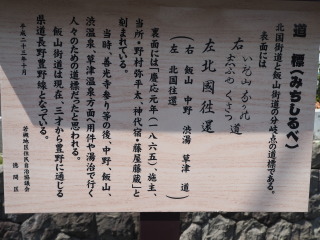 道 標(みちしるべ)
北国街道と飯山街道の分岐点の道標である。
表面には
右 いゝ山 なかの 志ぶゆ くさつ 道
左 北國往還
(右 飯山 中野 渋湯 草津 道)
(左 北国往還)
裏面には「慶応元年(一八六五)、施主、
当所・野村弥平太、神代宿・藤屋藤蔵」と
刻まれている。
当時、善光寺参り等の後、中野、飯山、
渋温泉、草津温泉方面へ用件や湯治で行く
人々のための道標だったと思われる。
飯山街道は現在、三才から豊野に通じる
県道長野豊野線となっている。
平成二十三年十月
若槻地区住民自治協議会
徳間区